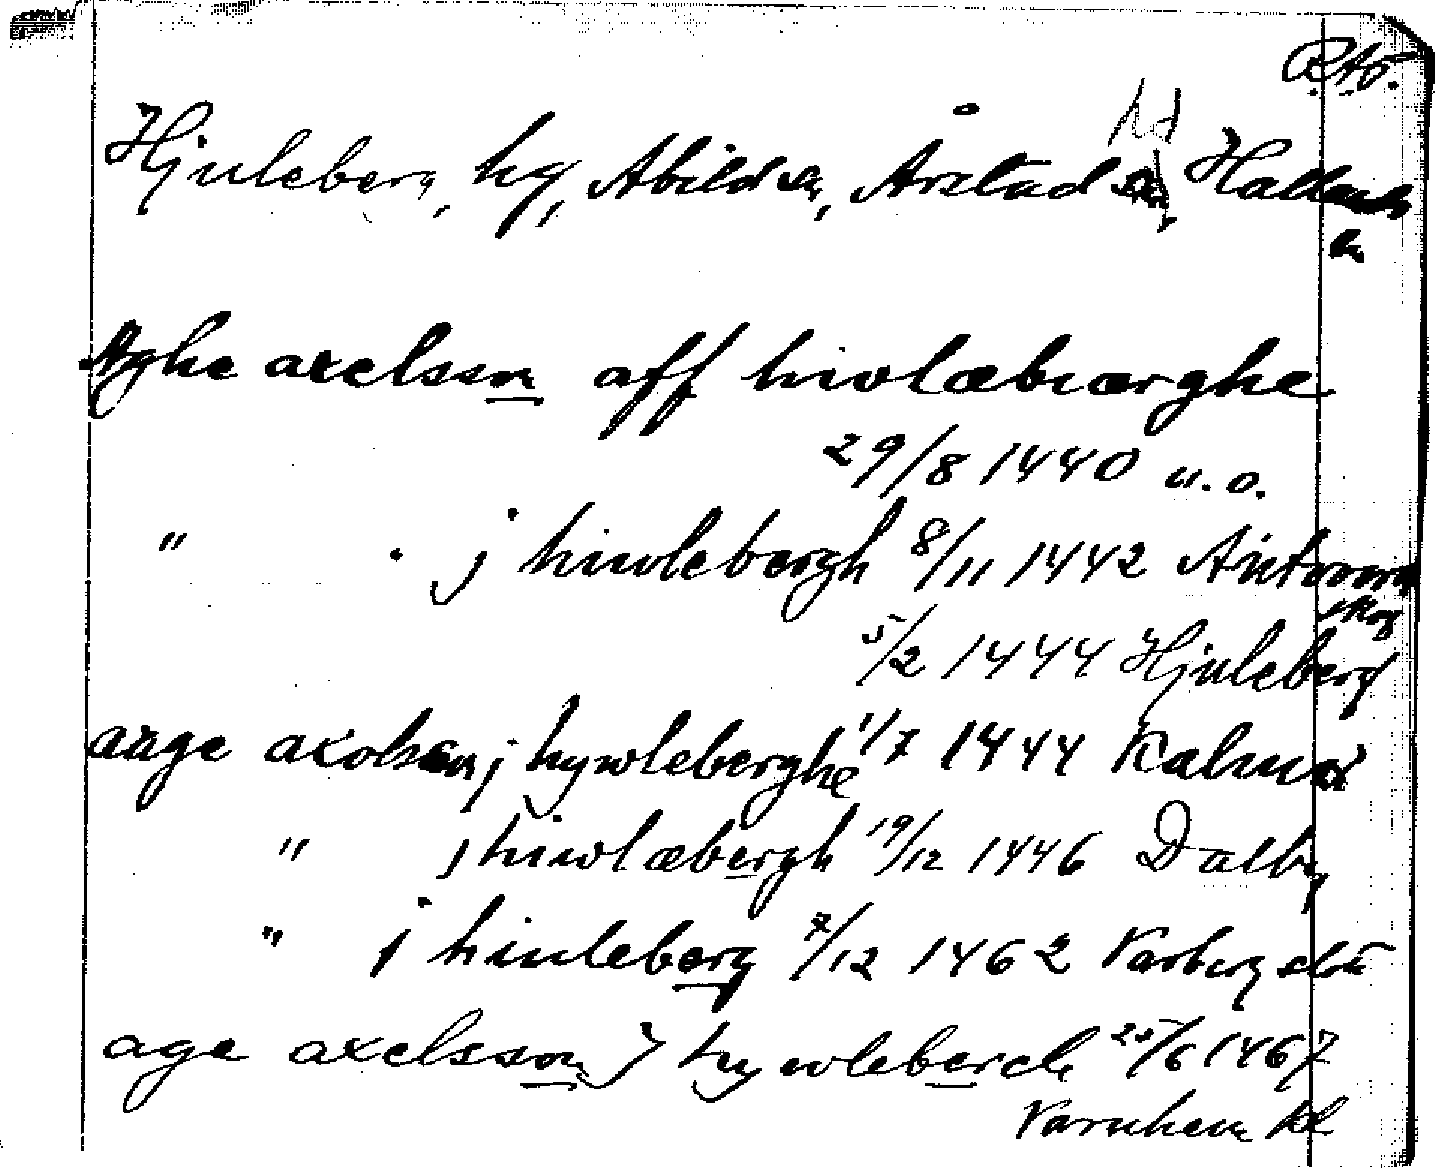 RAÖ.
Hjuleberg, hg, Abild sn, Årstad hd, Hallands
ln
Aghe axelsson aff hiwlæbiærghe
29/8 1440 u.o.
" . j hiwlebergh 8/11 1442 Antvorn
skog
5/2 1444 Hjuleberg
aage axelssen j hywleberghe 1/7 1444 Kalmar
" j hiwlæbergh 19/12 1446 Dalby
" j hiuleberg 7/12 1462 Varberg slott
age axelsson j hywleberch 25/6 1467
Varnhem kl.